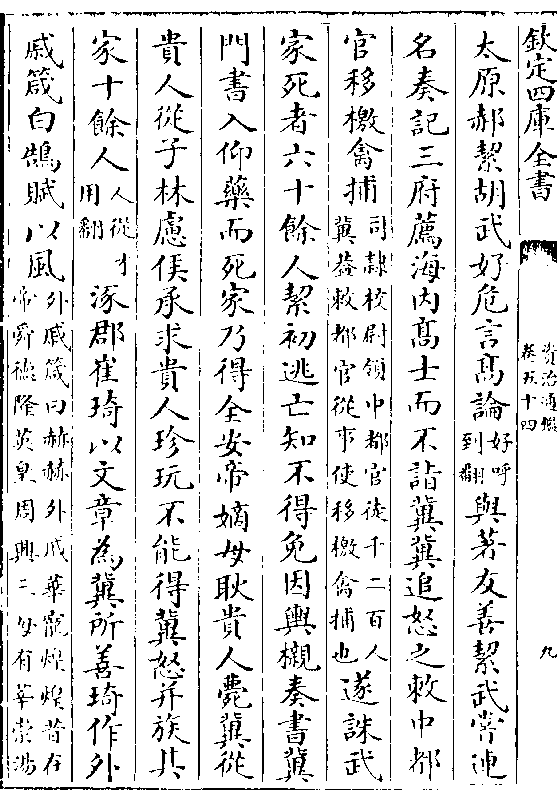 欽定四庫全書
資治通鑑
卷五十四
九
太原郝絜胡武好危言髙論好呼到翻與著友善絜武常連
名奏記三府薦海内髙士而不詣冀冀追怒之敕中都
官移檄禽捕司隸校尉領中都官徒千二百人冀葢敕都官從事使移檄禽捕也遂誅武
家死者六十餘人絜初逃亡知不得免因輿櫬奏書冀
門書入仰藥而死家乃得全安帝嫡母耿貴人薨冀從
貴人從子林慮侯承求貴人珍玩不能得冀怒并族其
家十餘人人從才用翻涿郡崔琦以文章為冀所善琦作外
戚箴白鵠賦以風外戚箴曰赫赫外戚華寵煌煌昔在帝舜德隆英皇周興三母有莘崇湯